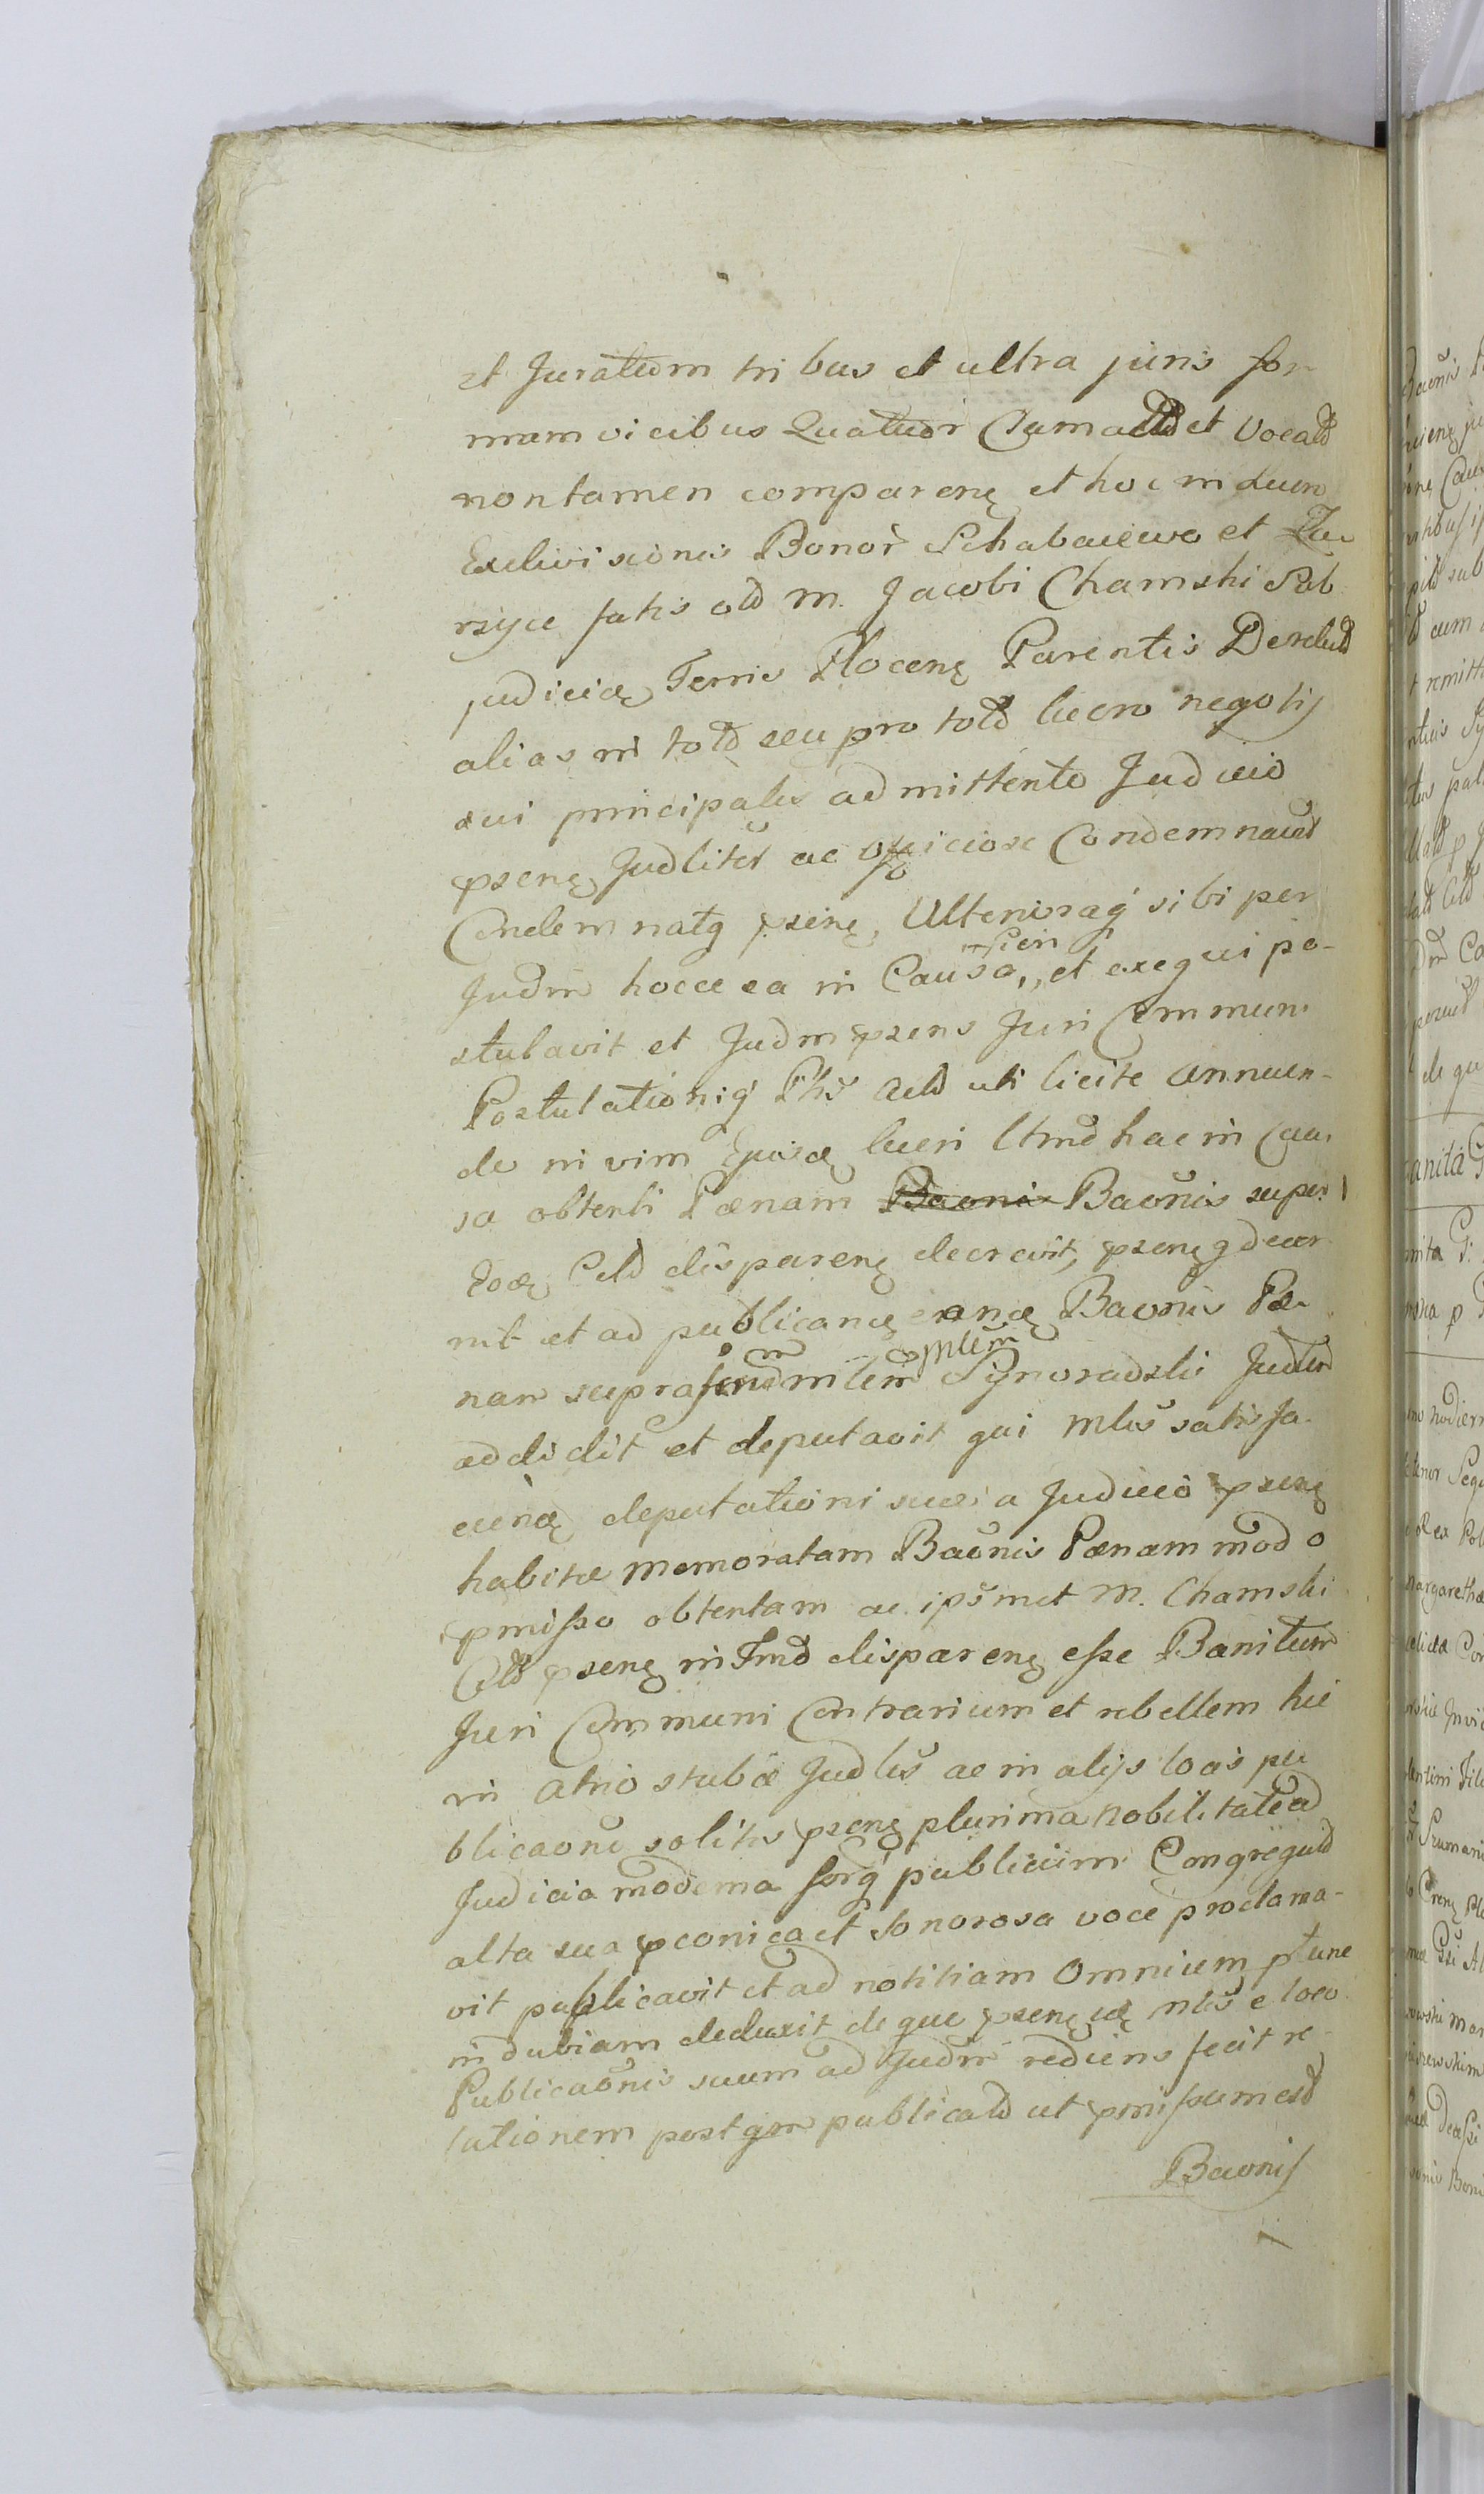 et Juratum tribus et ultra juris for-
mam vicibus Quatuor Clamatū et Vocatū
non tamen comparenę et hoc in Lucro
Exdivisionis Bonoř Schabaiewo et Zu-
rzyce fatis olī M. Jacobi Chamski Sub
judicię Terris Plocenę Parentis Derelict
alias in totō seu pro totō lucro negotij
sui principalis admittento Judicio
pseną Judliter ac officiose Condemnavit
Condemnatq psenę, Ulterioraq sibi per
Judm hocce ea in Causa,, fieri et exequi po-
stulavit et Judm psens Juri Communi
Postulationiq Pħis Actō uti licite annuen-
do in vim Ejusdę lucri ltmē hac in Cau-
sa obtenti Pœnam Baonis Baonis super
Eodę Citō disparenę decrevit, psenęq decer
nit et ad publicandę eandę Baonis Pœ-
nam supra mlem Synoradzki Judlem
addidit et deputavit qui Mlis satisfa-
ciendę deputationi suæ a Judicio psenę
habitæ memoratam Baonis Pœnam modo
pmisso obtentam ac ipsmet M. Chamski
Citō psenę in Tmō disparenę esse Banitum
Juri Communi Contrarium et rebellem hic
in atrio stubæ Judlis ac in alijs locis pu
blicaoni solitis psenę plurima nobilitate ad
Judicia moderna forq publicum Congregatō
alta sua pconica et sonorosa voce proclama-
vit publicavit et ad notitiam Omnium ptunc
indubiam deduxit de que psenę idę mlis e loco
Publicaonis suum ad Judm rediens fecit re-
lationem post qm publicatō ut pmissum est
Baonis